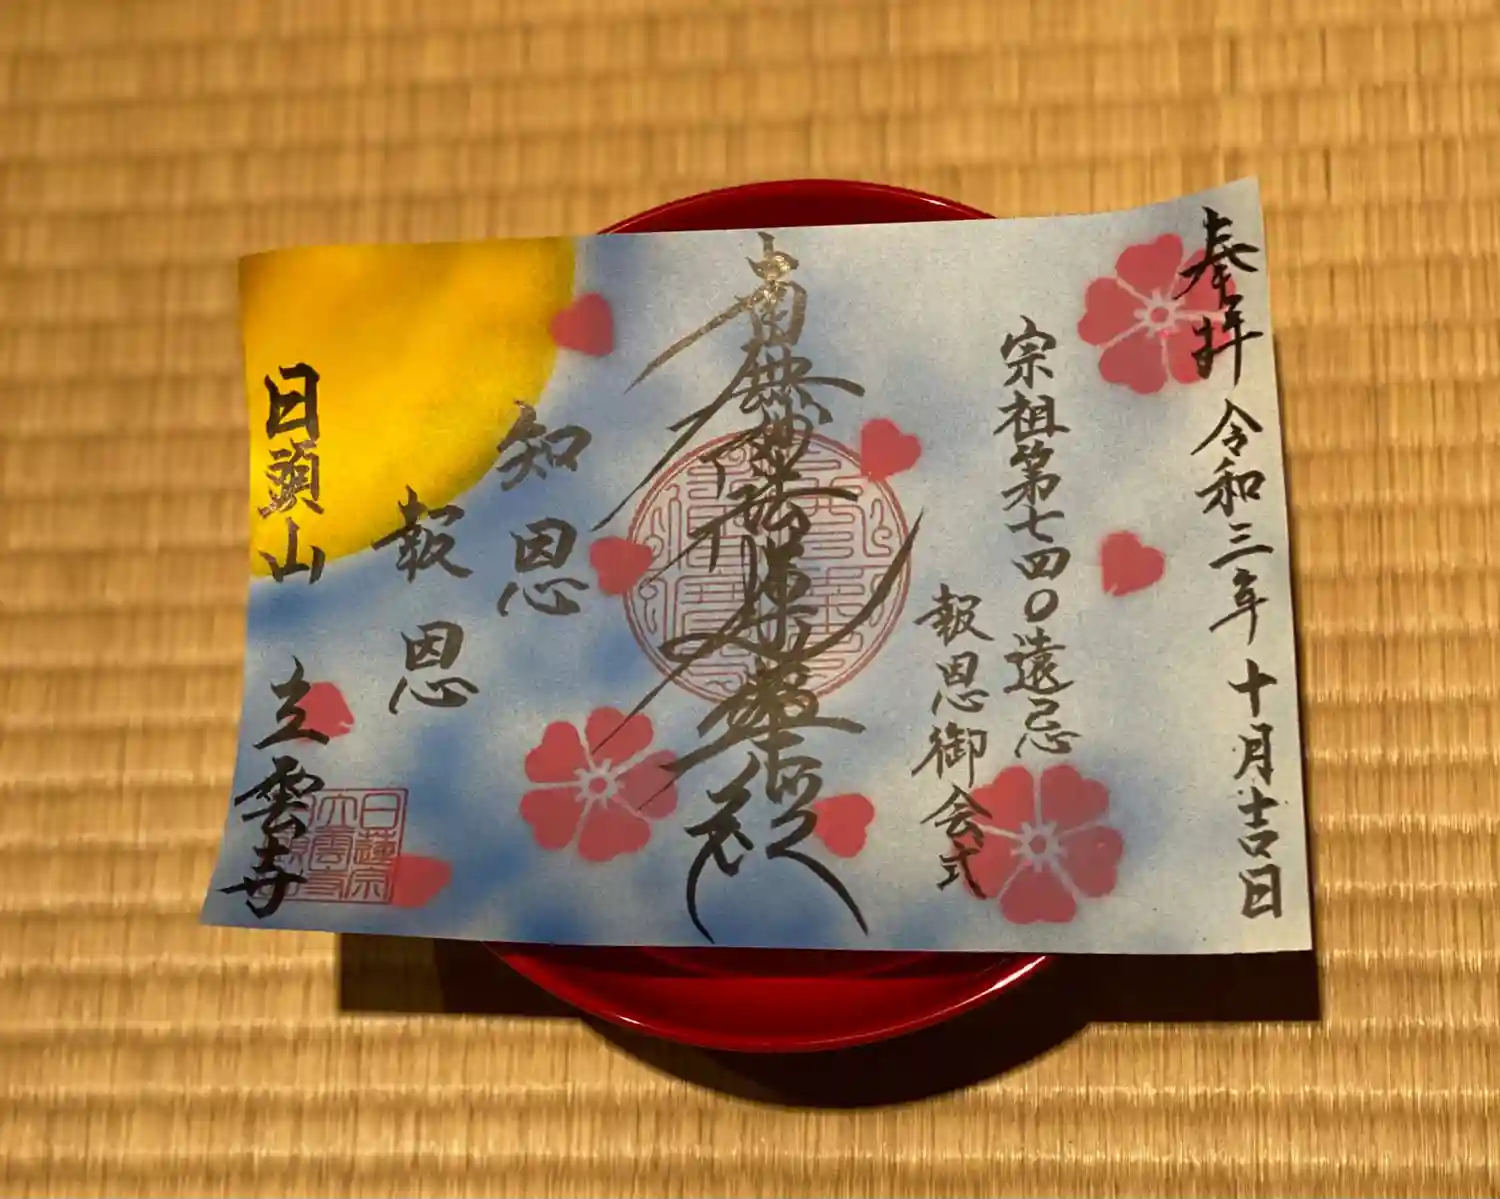 奉拝 令和三年十月吉日
宗祖第七四〇遠忌
報恩御会式
南無妙法蓮華経
知恩
報恩
日頭山 立雲寺
日蓮宗
立雲寺